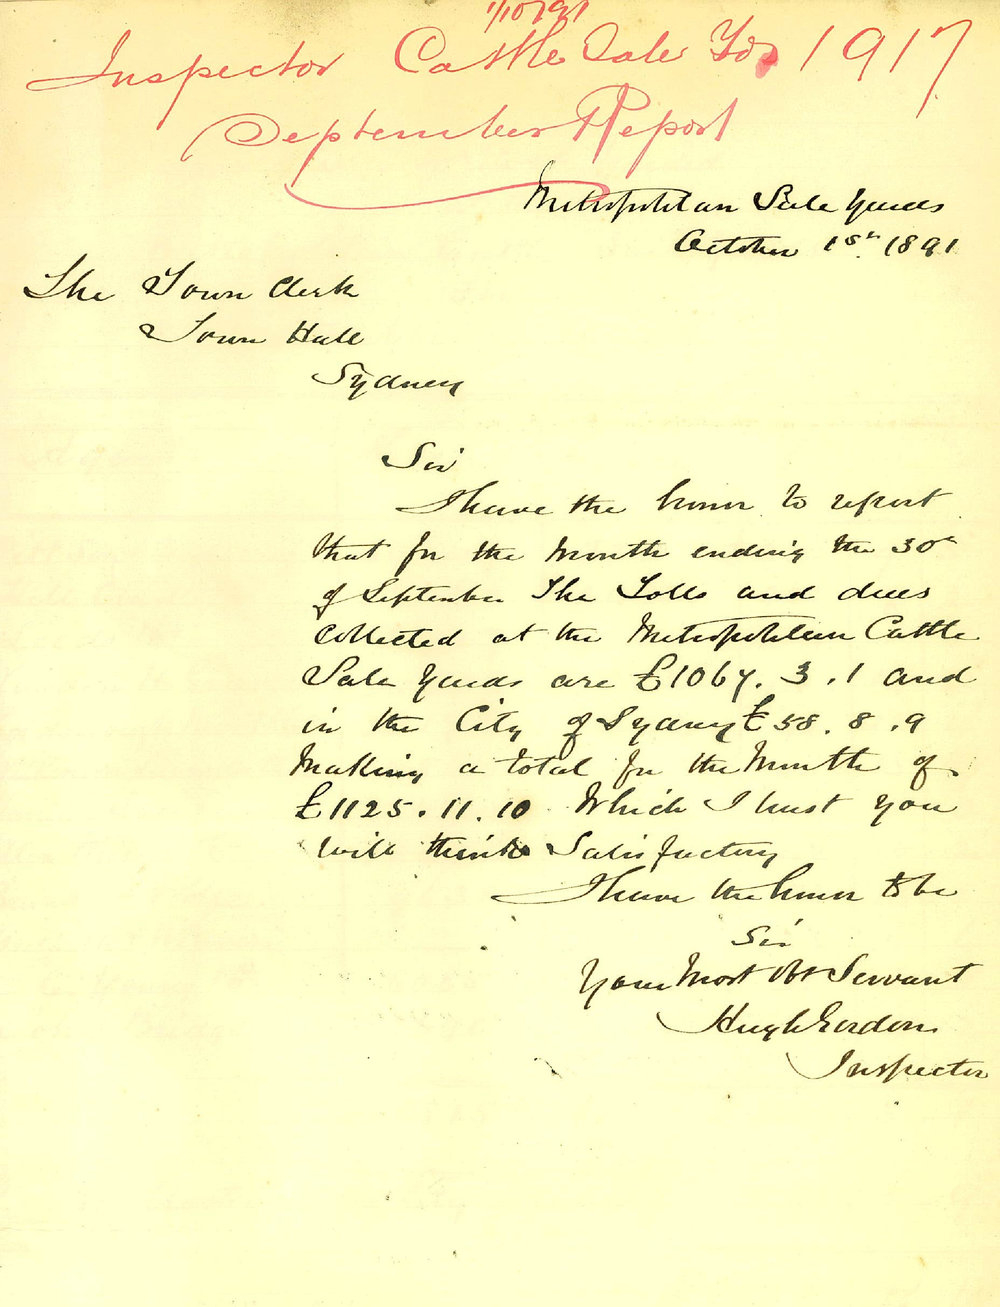 1/10/91
Inspector Cattle Sale Yds 1917
September Report
Metropolitan Sale Yards
October 1st. 1891
The Town Clerk
Town Hall
Sydney
Sir
I have the honor to report
that for the Month ending the 30th
of September The Tolls and dues
Collected at the Metropolitan Cattle
Sale Yards are £1067.3.1 and
in the City of Sydney £58.8.9
Making a total for the Month of
£1125.11.10 Which I trust you
will think Satisfactory
I have the honor to be
Sir
Your Most Obt Servant
Hugh Gordon
Inspector